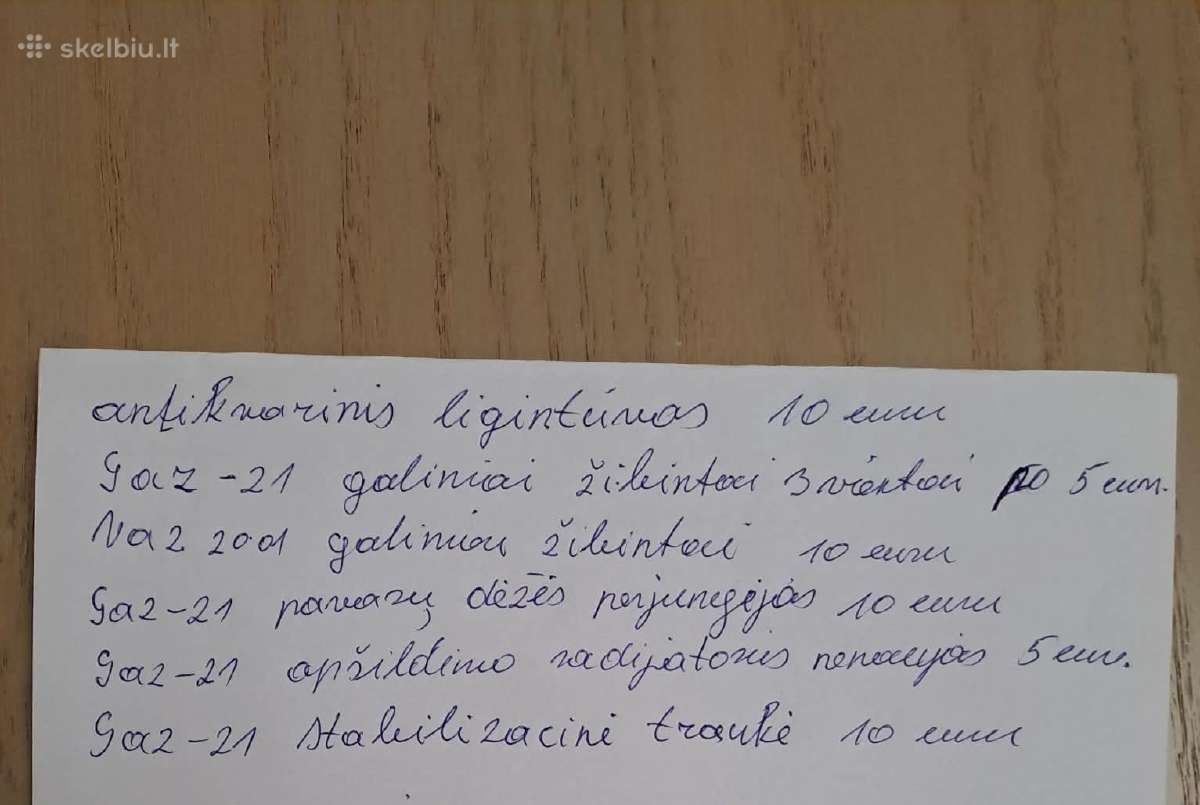 skelbiu.lt
antikvarinis ligintūvas 10 euru
Gaz-21 galiniai žibintai 3 vientai po 5 eur.
Vaz 2101 galiniai žibintai 10 euru
Gaz-21 pavarų dėžės perjungėjas 10 euru
Gaz-21 apšildimo radijatorius nenaujas 5 eur.
Gaz-21 stabilizacinė traukė 10 euru